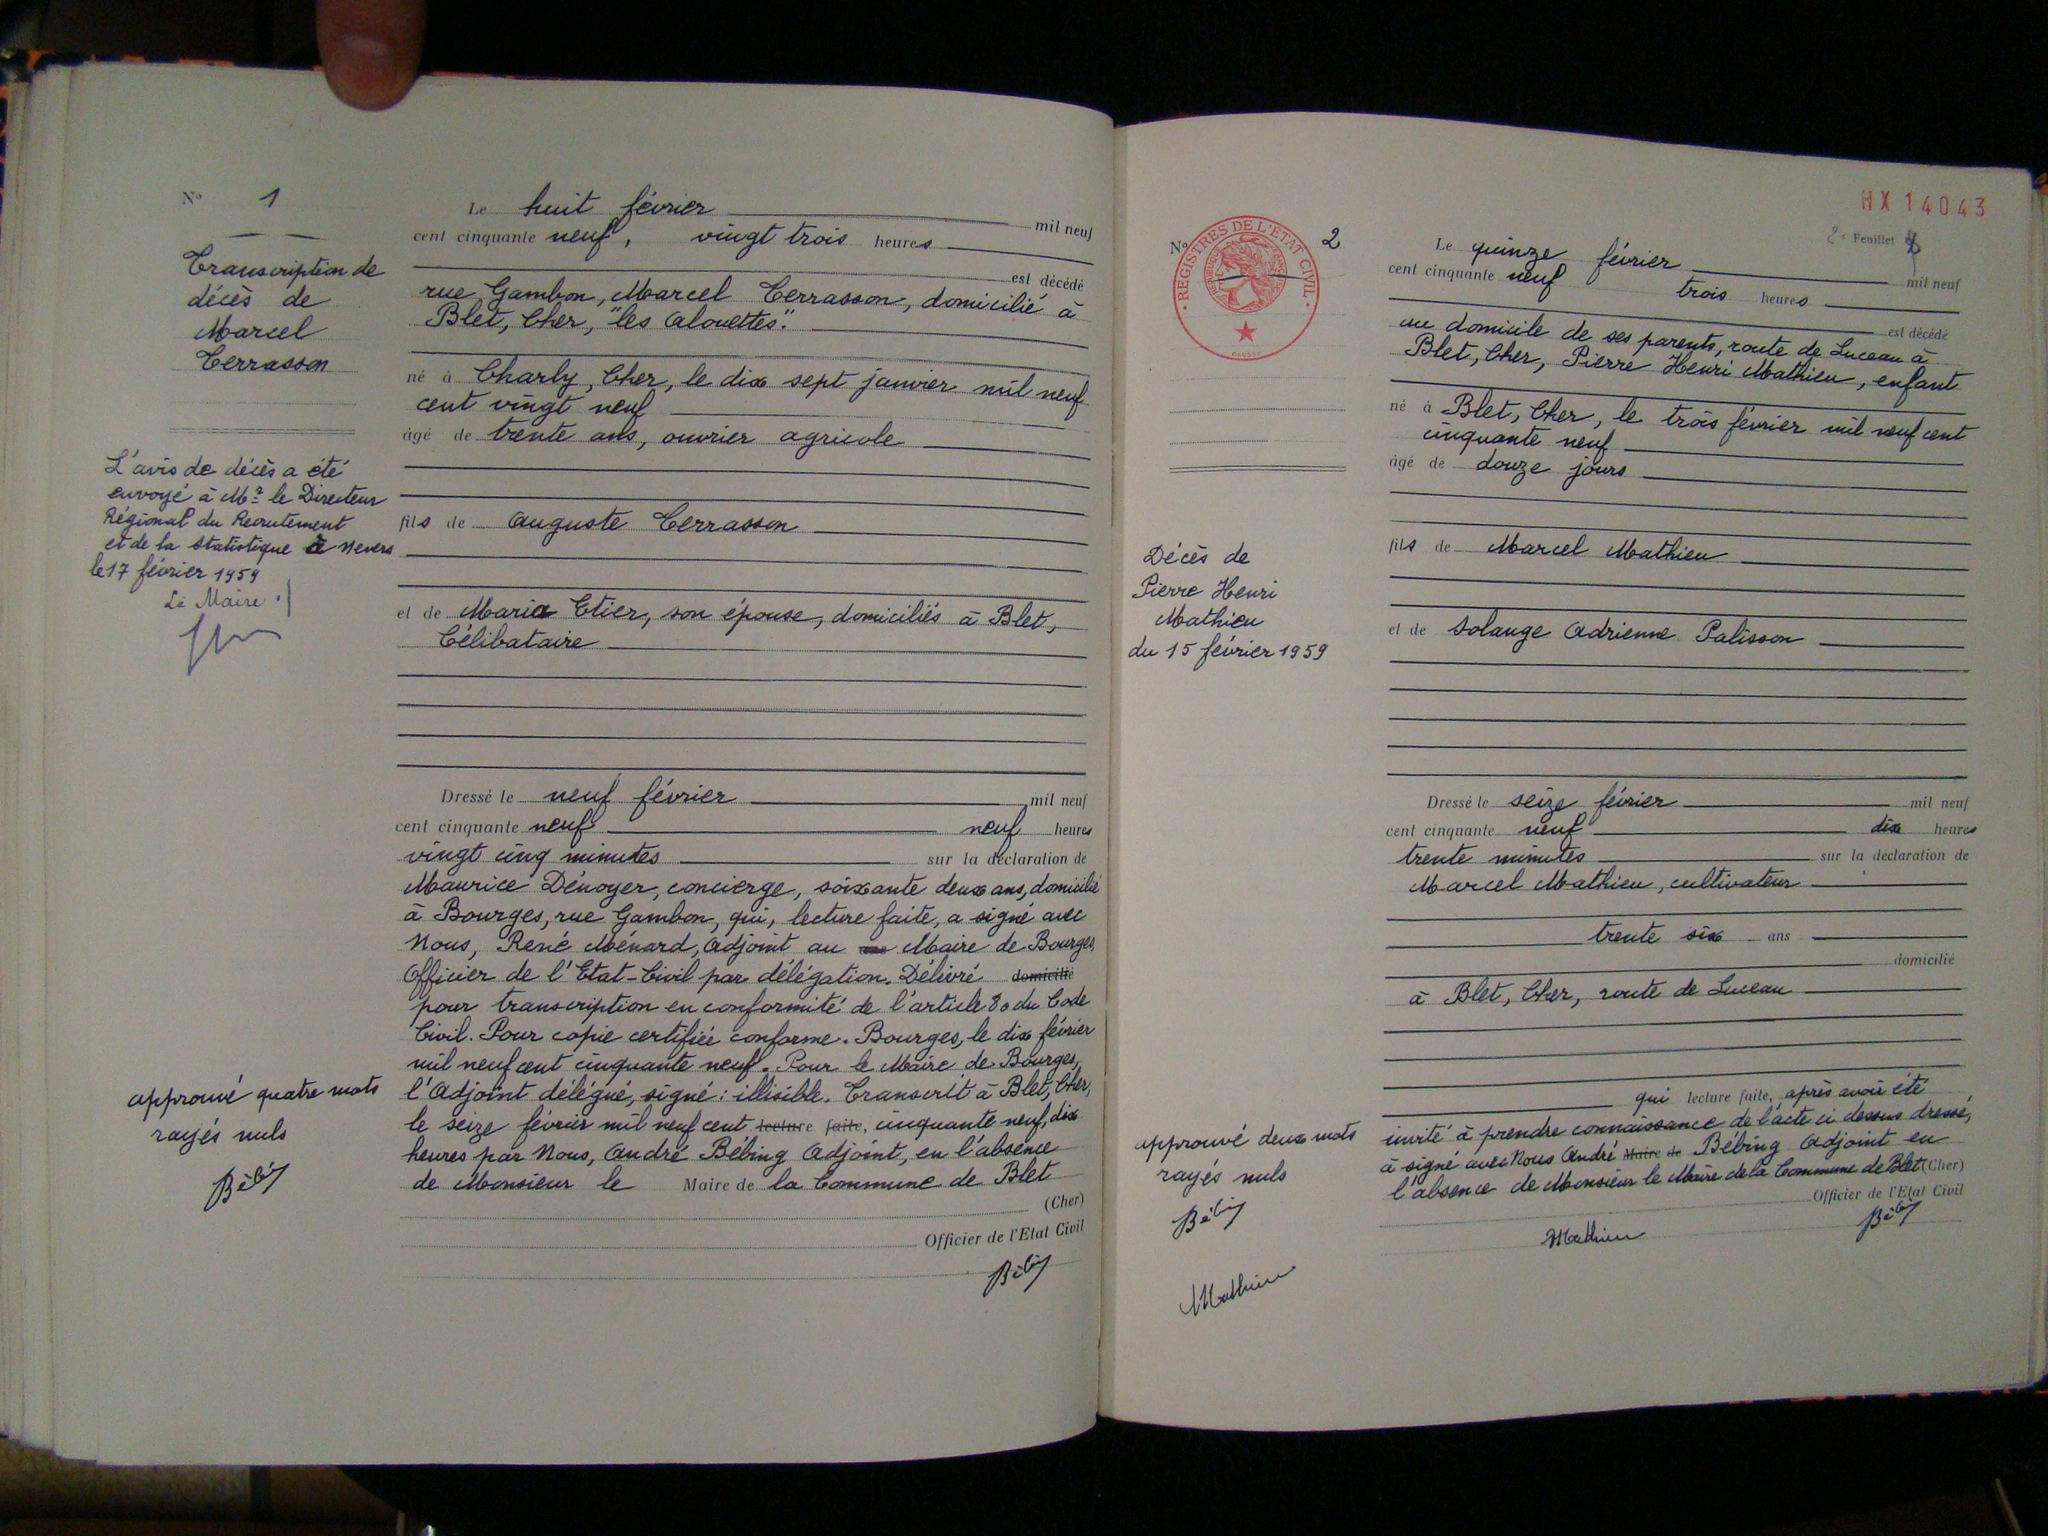 N° 1
Transcription de
décès de
Marcel
Terrasson
L'avis de décès a été
envoyé à Mr le Directeur
Régional du Recrutement
et de la Statistique à Nevers
le 17 février 1959
Le Maire
approuvé quatre mots
rayés nuls
Le huit février mil neuf
cent cinquante neuf, vingt trois heures
est décédé
rue Gambon, Marcel Terrasson, domicilié à
Blet, Cher, "les Alouettes".
né à Charly, Cher, le dix sept janvier mil neuf
cent vingt neuf
âgé de trente ans, ouvrier agricole
fils de Auguste Terrasson
et de Maria Etier, son épouse, domiciliés à Blet,
Célibataire
Dressé le neuf février mil neuf
cent cinquante neuf neuf heures
vingt cinq minutes sur la déclaration de
Maurice Dénoyer, concierge, soixante deux ans, domicilié
à Bourges, rue Gambon, qui, lecture faite, a signé avec
Nous, René Ménard, Adjoint au Maire de Bourges,
Officier de l'Etat-Civil par délégation. Délivré domicilié
pour transcription en conformité de l'article 80 du Code
Civil. Pour copie certifiée conforme. Bourges, le dix février
mil neuf cent cinquante neuf. Pour le Maire de Bourges,
l'Adjoint délégué, signé : illisible. Transcrit à Blet, Cher,
le seize février mil neuf cent lecture faite, cinquante neuf, dix
heures par Nous, André Bébing Adjoint, en l'absence
de Monsieur le Maire de la Commune de Blet
(Cher)
Officier de l'Etat Civil
HX 14043
2e Feuillet
N° 2
REGISTRES DE L'ETAT CIVIL
Décès de
Pierre Henri
Mathieu
du 15 février 1959
approuvé deux mots
rayés nuls
Mathieu
Le quinze février mil neuf
cent cinquante neuf trois heures
est décédé
au domicile de ses parents, route de Luceau à
Blet, Cher, Pierre Henri Mathieu, enfant
né à Blet, Cher, le trois février mil neuf cent
cinquante neuf
âgé de douze jours
fils de Marcel Mathieu
et de Solange Adrienne Palisson
Dressé le seize février mil neuf
cent cinquante neuf dix heures
trente minutes sur la déclaration de
Marcel Mathieu, cultivateur
trente six ans
domicilié
à Blet, Cher, route de Luceau
qui lecture faite, après avoir été
invité à prendre connaissance de l'acte ci dessus dressé,
à signé avec Nous André Maire de Bébing Adjoint en
l'absence de Monsieur le Maire de la Commune de Blet (Cher)
Officier de l'Etat Civil
Mathieu